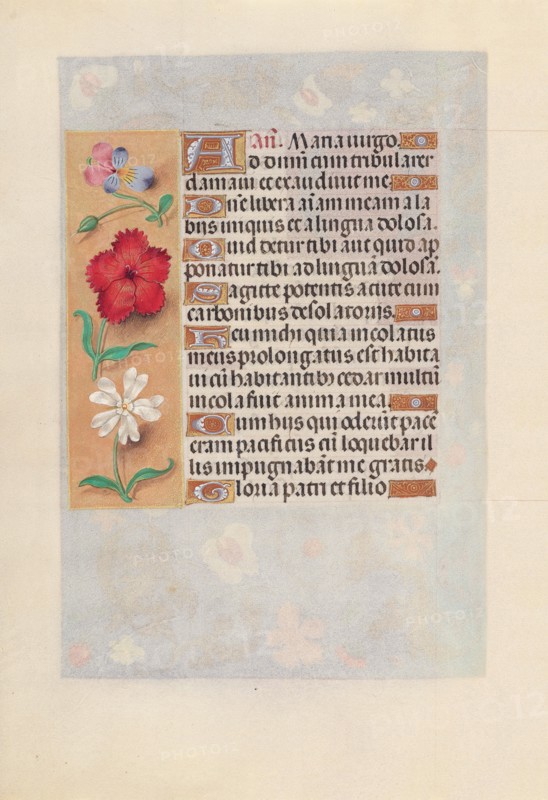 Añ. Maria uirgo.
Ad dominũ cum tribularer
clamaui et exaudiuit me.
Dñe libera aĩam meam a la
bijs iniquis et a lingua dolosa.
Quid detur tibi aut quid ap
ponatur tibi ad linguã dolosã.
Sagitte potentis acute cum
carbonibus desolatorijs.
Heu michi quia incolatus
meus prolongatus est habita
ui cũ habitantibꝫ cedar multũ
incola fuit anima mea.
Cum hijs qui oderũt pacẽ
eram pacificus cũ loquebar il
lis impugnabãt me gratis.
Gloria patri et filio
PHOTO12